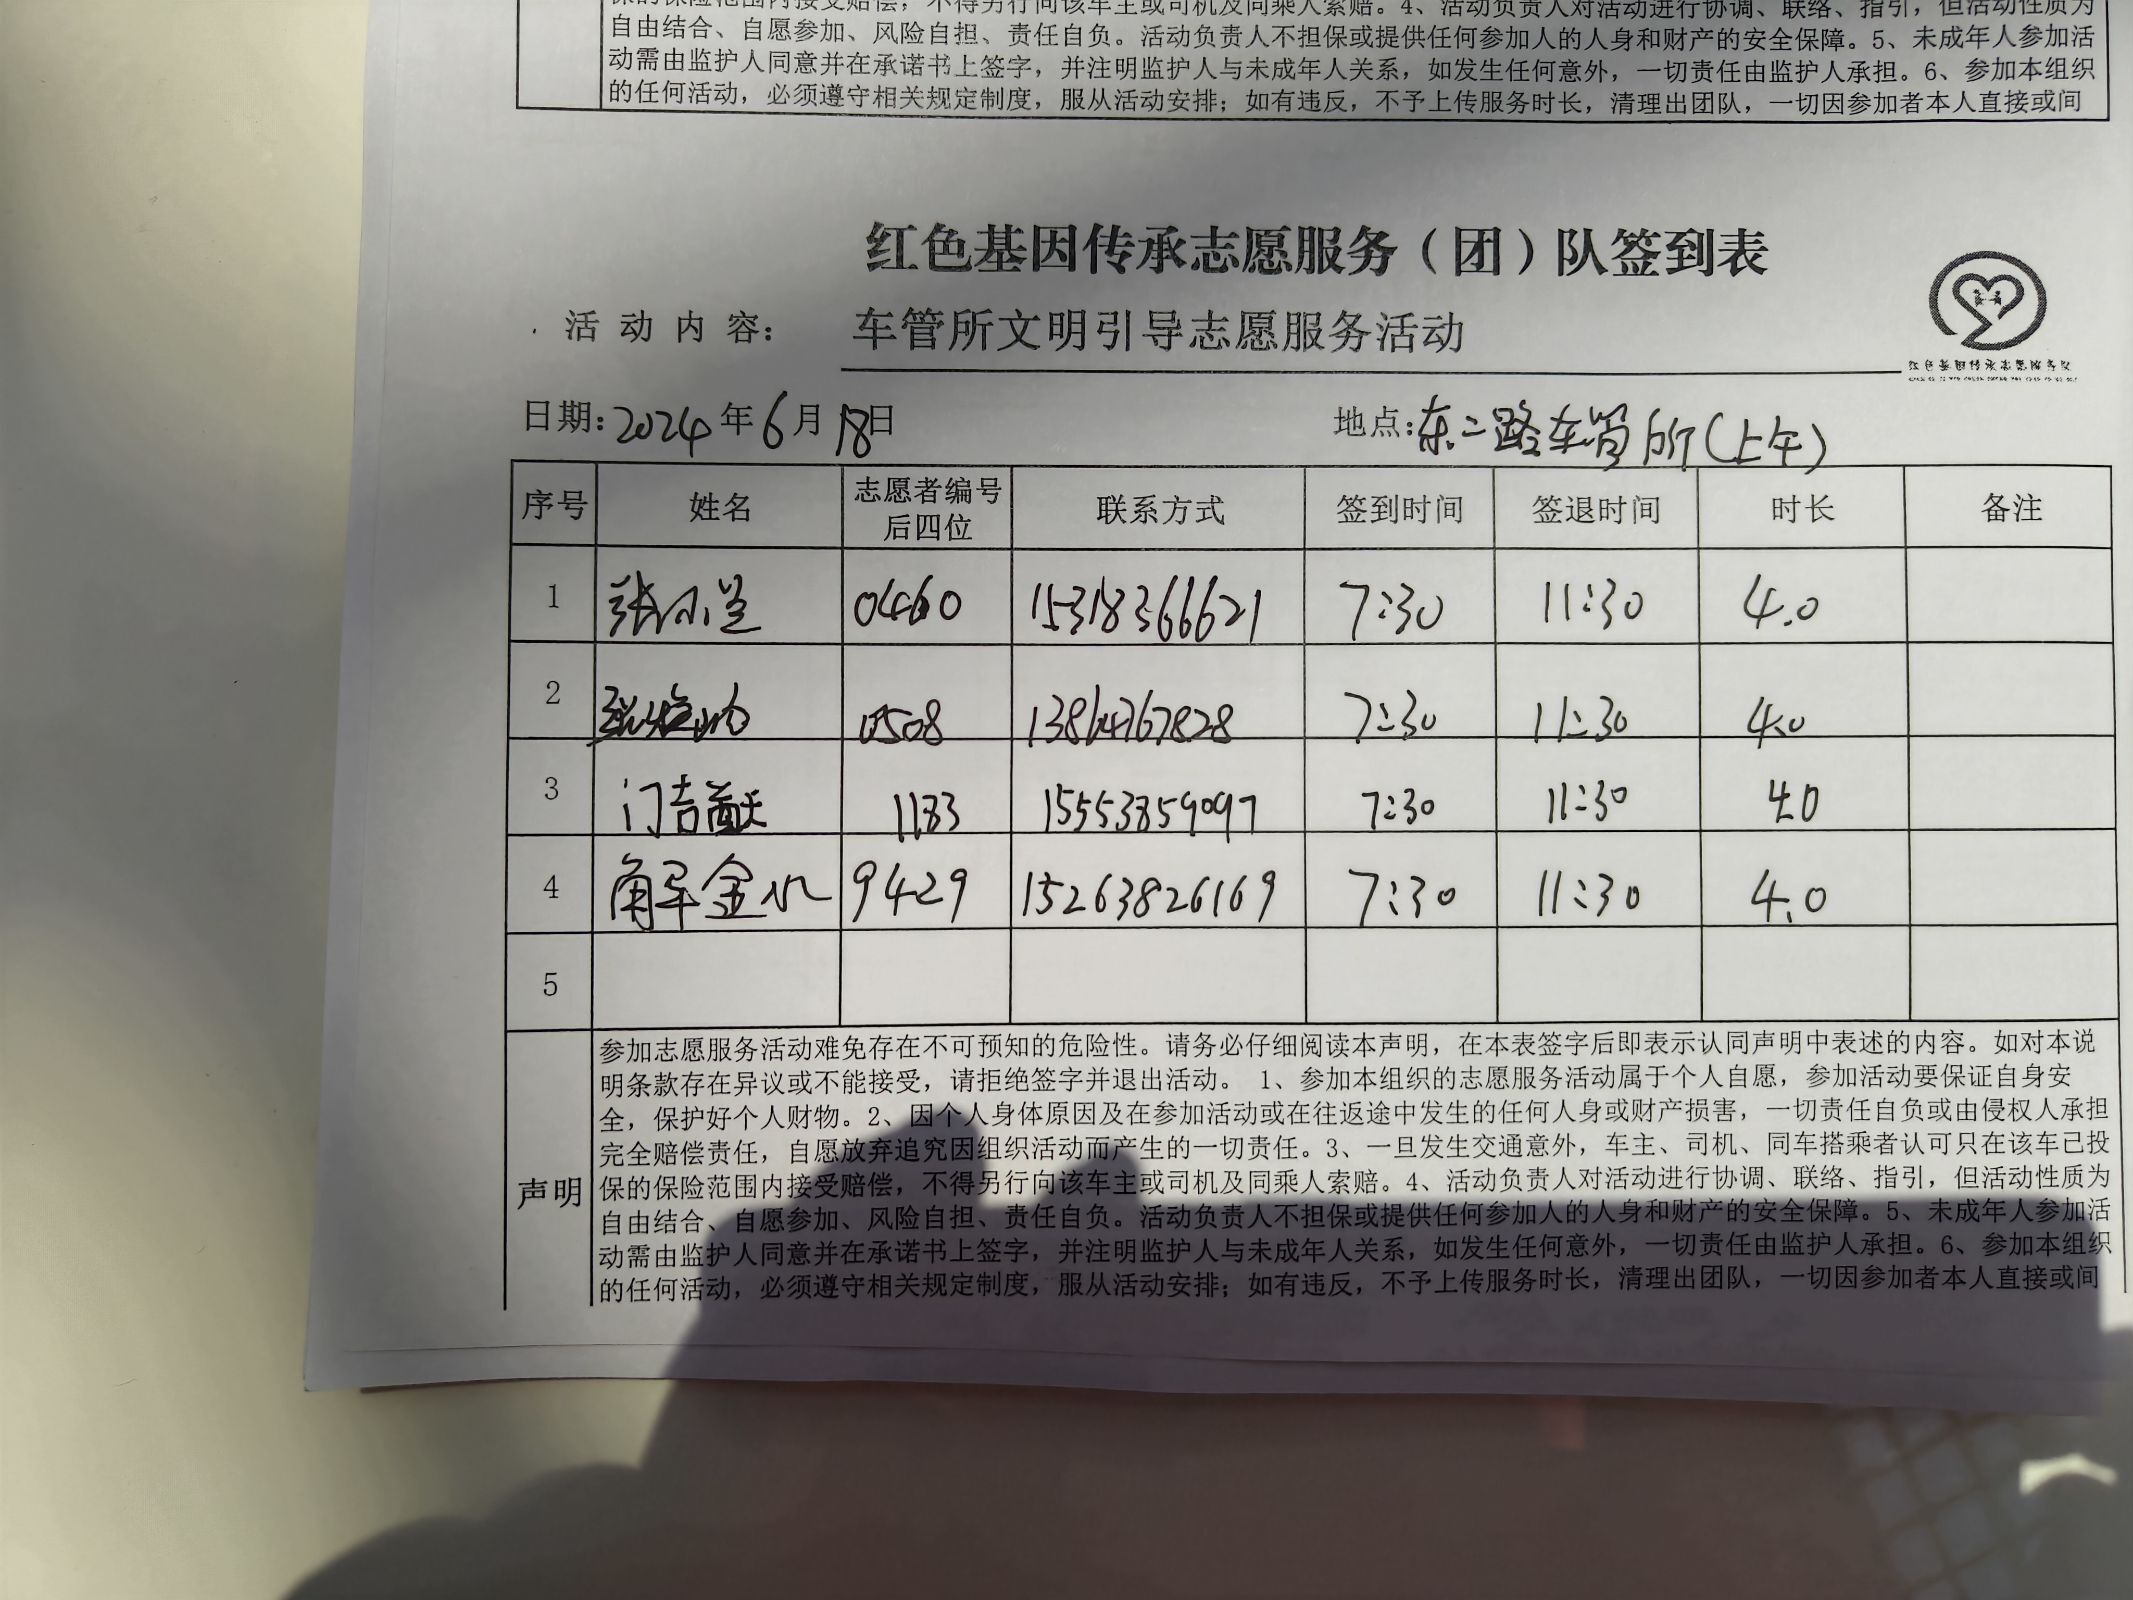 保的保险范围内接受赔偿，不得另行向该车主或司机及同乘人索赔。4、活动负责人对活动进行协调、联络、指引，但活动性质为
自由结合、自愿参加、风险自担、责任自负。活动负责人不担保或提供任何参加人的人身和财产的安全保障。5、未成年人参加活
动需由监护人同意并在承诺书上签字，并注明监护人与未成年人关系，如发生任何意外，一切责任由监护人承担。6、参加本组织
的任何活动，必须遵守相关规定制度，服从活动安排；如有违反，不予上传服务时长，清理出团队，一切因参加者本人直接或间
红色基因传承志愿服务（团）队签到表
活动内容： 车管所文明引导志愿服务活动
日期：2024年6月18日 地点：东二路车管所（上午）
序号 姓名 志愿者编号后四位 联系方式 签到时间 签退时间 时长 备注
1 张小兰 0460 15318366621 7:30 11:30 4.0
2 0508 13864767828 7:30 11:30 4.0
3 门吉献 1183 15553859097 7:30 11:30 4.0
4 解金水 9429 15263826169 7:30 11:30 4.0
5
声明
参加志愿服务活动难免存在不可预知的危险性。请务必仔细阅读本声明，在本表签字后即表示认同声明中表述的内容。如对本说
明条款存在异议或不能接受，请拒绝签字并退出活动。 1、参加本组织的志愿服务活动属于个人自愿，参加活动要保证自身安
全，保护好个人财物。2、因个人身体原因及在参加活动或在往返途中发生的任何人身或财产损害，一切责任自负或由侵权人承担
完全赔偿责任，自愿放弃追究因组织活动而产生的一切责任。3、一旦发生交通意外，车主、司机、同车搭乘者认可只在该车已投
保的保险范围内接受赔偿，不得另行向该车主或司机及同乘人索赔。4、活动负责人对活动进行协调、联络、指引，但活动性质为
自由结合、自愿参加、风险自担、责任自负。活动负责人不担保或提供任何参加人的人身和财产的安全保障。5、未成年人参加活
动需由监护人同意并在承诺书上签字，并注明监护人与未成年人关系，如发生任何意外，一切责任由监护人承担。6、参加本组织
的任何活动，必须遵守相关规定制度，服从活动安排；如有违反，不予上传服务时长，清理出团队，一切因参加者本人直接或间